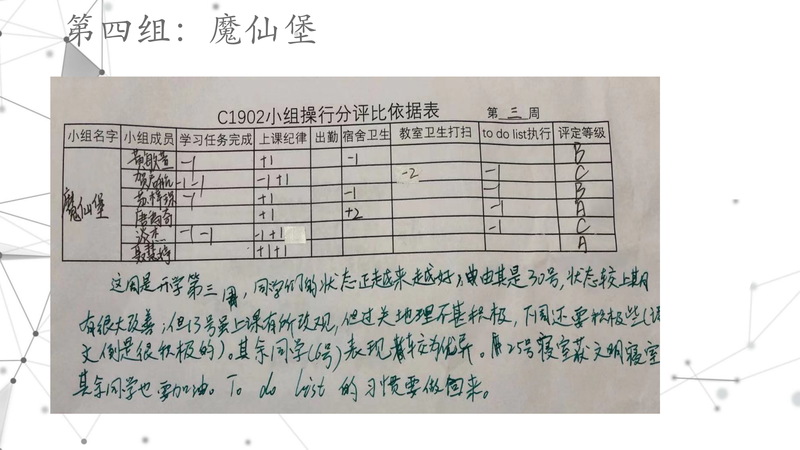 第四组：魔仙堡
C1902小组操行分评比依据表 第 三 周
小组名字 小组成员 学习任务完成 上课纪律 出勤 宿舍卫生 教室卫生打扫 to do list执行 评定等级
魔仙堡
-1 +1 -1 B
-1 -1 -1 +1 -2 -1 C
-1 +1 -1 -1 B
+1 +2 -1 A
-1 -1 -1 +1 -1 C
+1 +1 A
这周是开学第三周，同学们的状态正越来越好，尤其是30号，状态较上期
有很大改善；但13号虽上课有所改观，但过关地理不甚积极，下周还要积极些（语
文倒是很积极的）。其余同学（6号）表现较为优异。25号寝室获文明寝室
其余同学也要加油。To do list 的习惯要做回来。